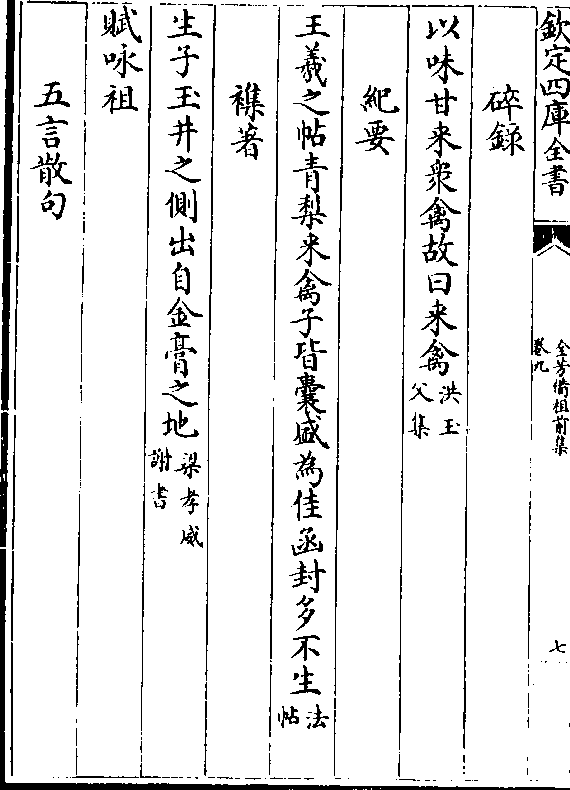 欽定四庫全書
全芳備祖前集
卷九
七
碎録
以味甘来衆禽故曰来禽洪玉父集
紀要
王羲之帖青梨来禽子皆囊盛為佳函封多不生法帖
襍著
生子玉井之側出自金膏之地梁孝威謝書
賦咏祖
五言散句